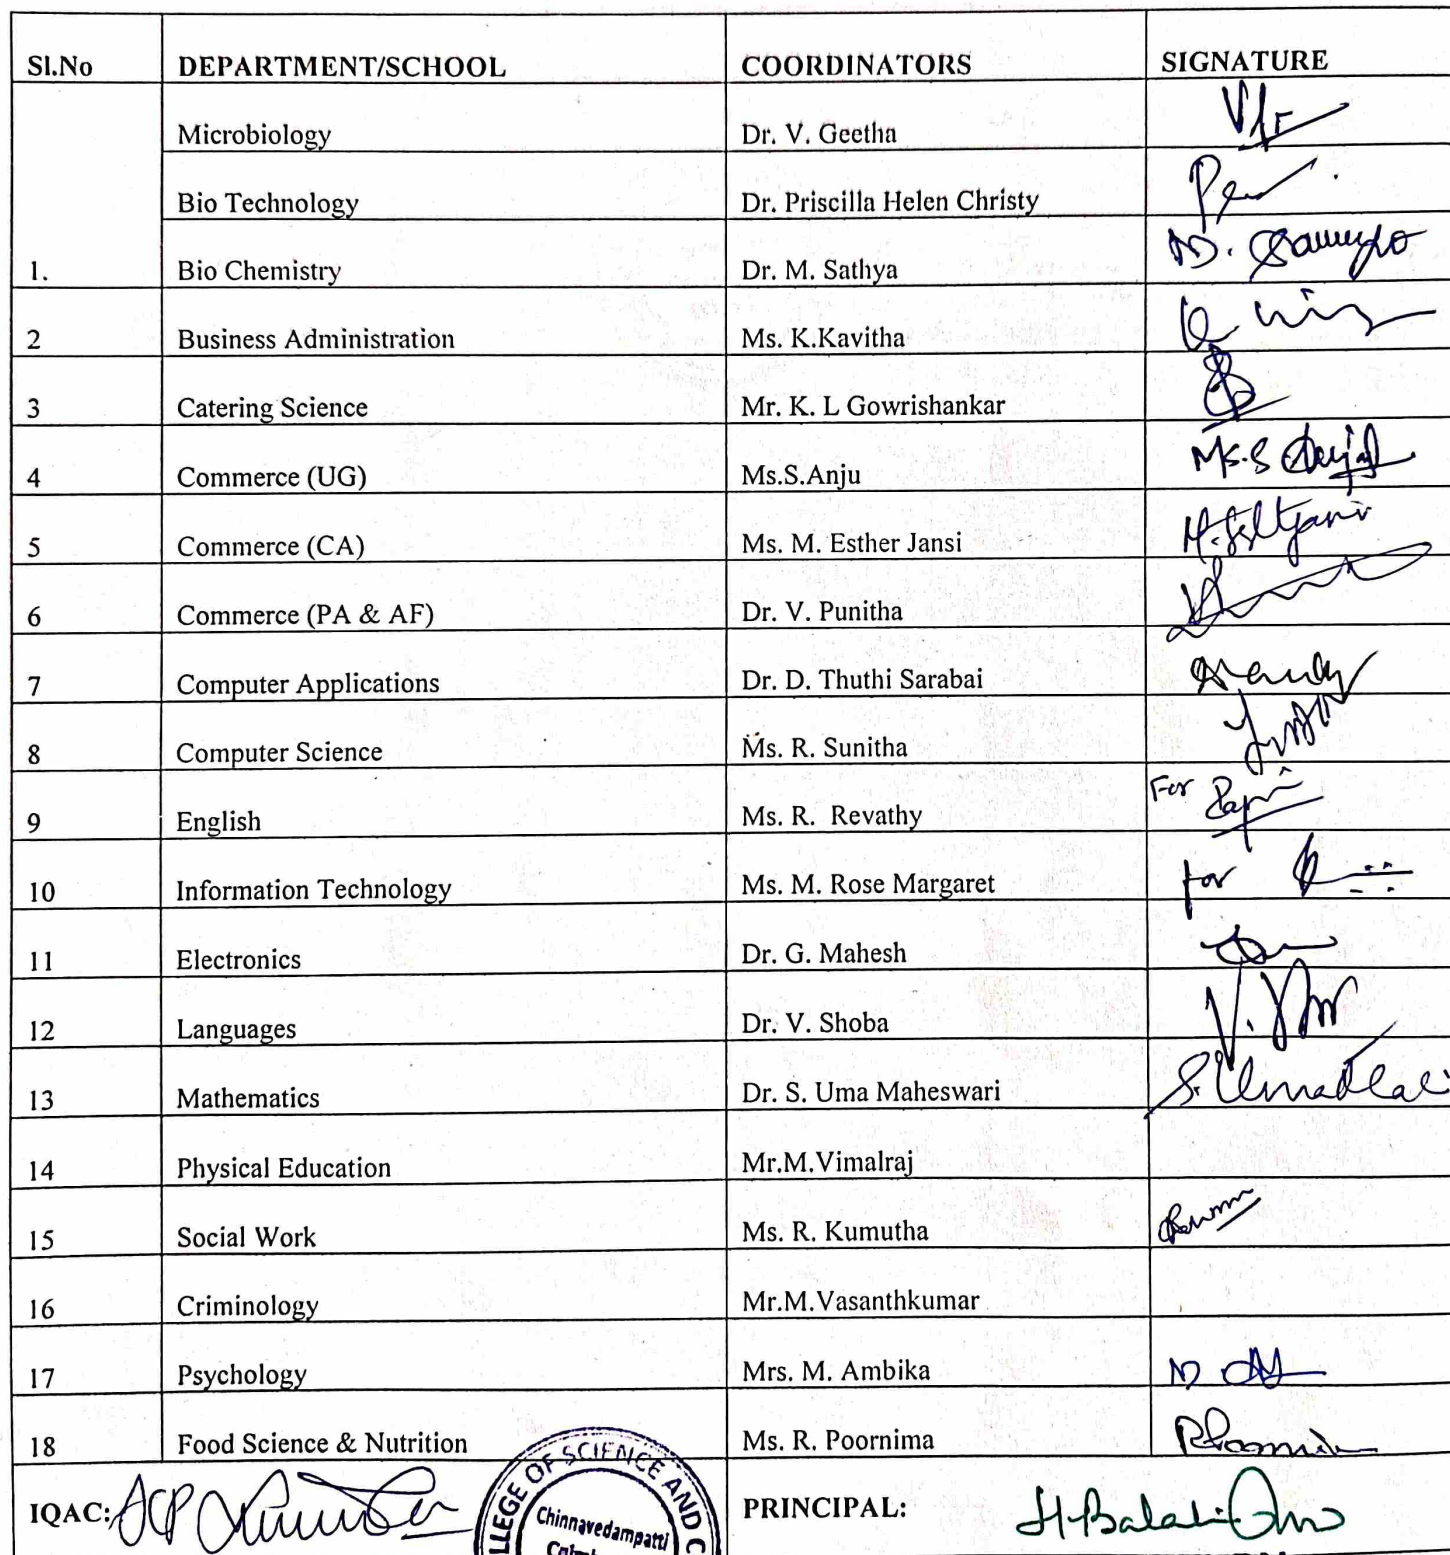 Sl.No DEPARTMENT/SCHOOL COORDINATORS SIGNATURE
Microbiology Dr. V. Geetha
Bio Technology Dr. Priscilla Helen Christy
1. Bio Chemistry Dr. M. Sathya
2 Business Administration Ms. K.Kavitha
3 Catering Science Mr. K. L Gowrishankar
4 Commerce (UG) Ms.S.Anju Ms.S
5 Commerce (CA) Ms. M. Esther Jansi
6 Commerce (PA & AF) Dr. V. Punitha
7 Computer Applications Dr. D. Thuthi Sarabai
8 Computer Science Ms. R. Sunitha
9 English Ms. R. Revathy For
10 Information Technology Ms. M. Rose Margaret for
11 Electronics Dr. G. Mahesh
12 Languages Dr. V. Shoba
13 Mathematics Dr. S. Uma Maheswari
14 Physical Education Mr.M.Vimalraj
15 Social Work Ms. R. Kumutha
16 Criminology Mr.M.Vasanthkumar
17 Psychology Mrs. M. Ambika
18 Food Science & Nutrition Ms. R. Poornima
OF SCIENCE AND
Chinnavedampatti
IQAC: PRINCIPAL: